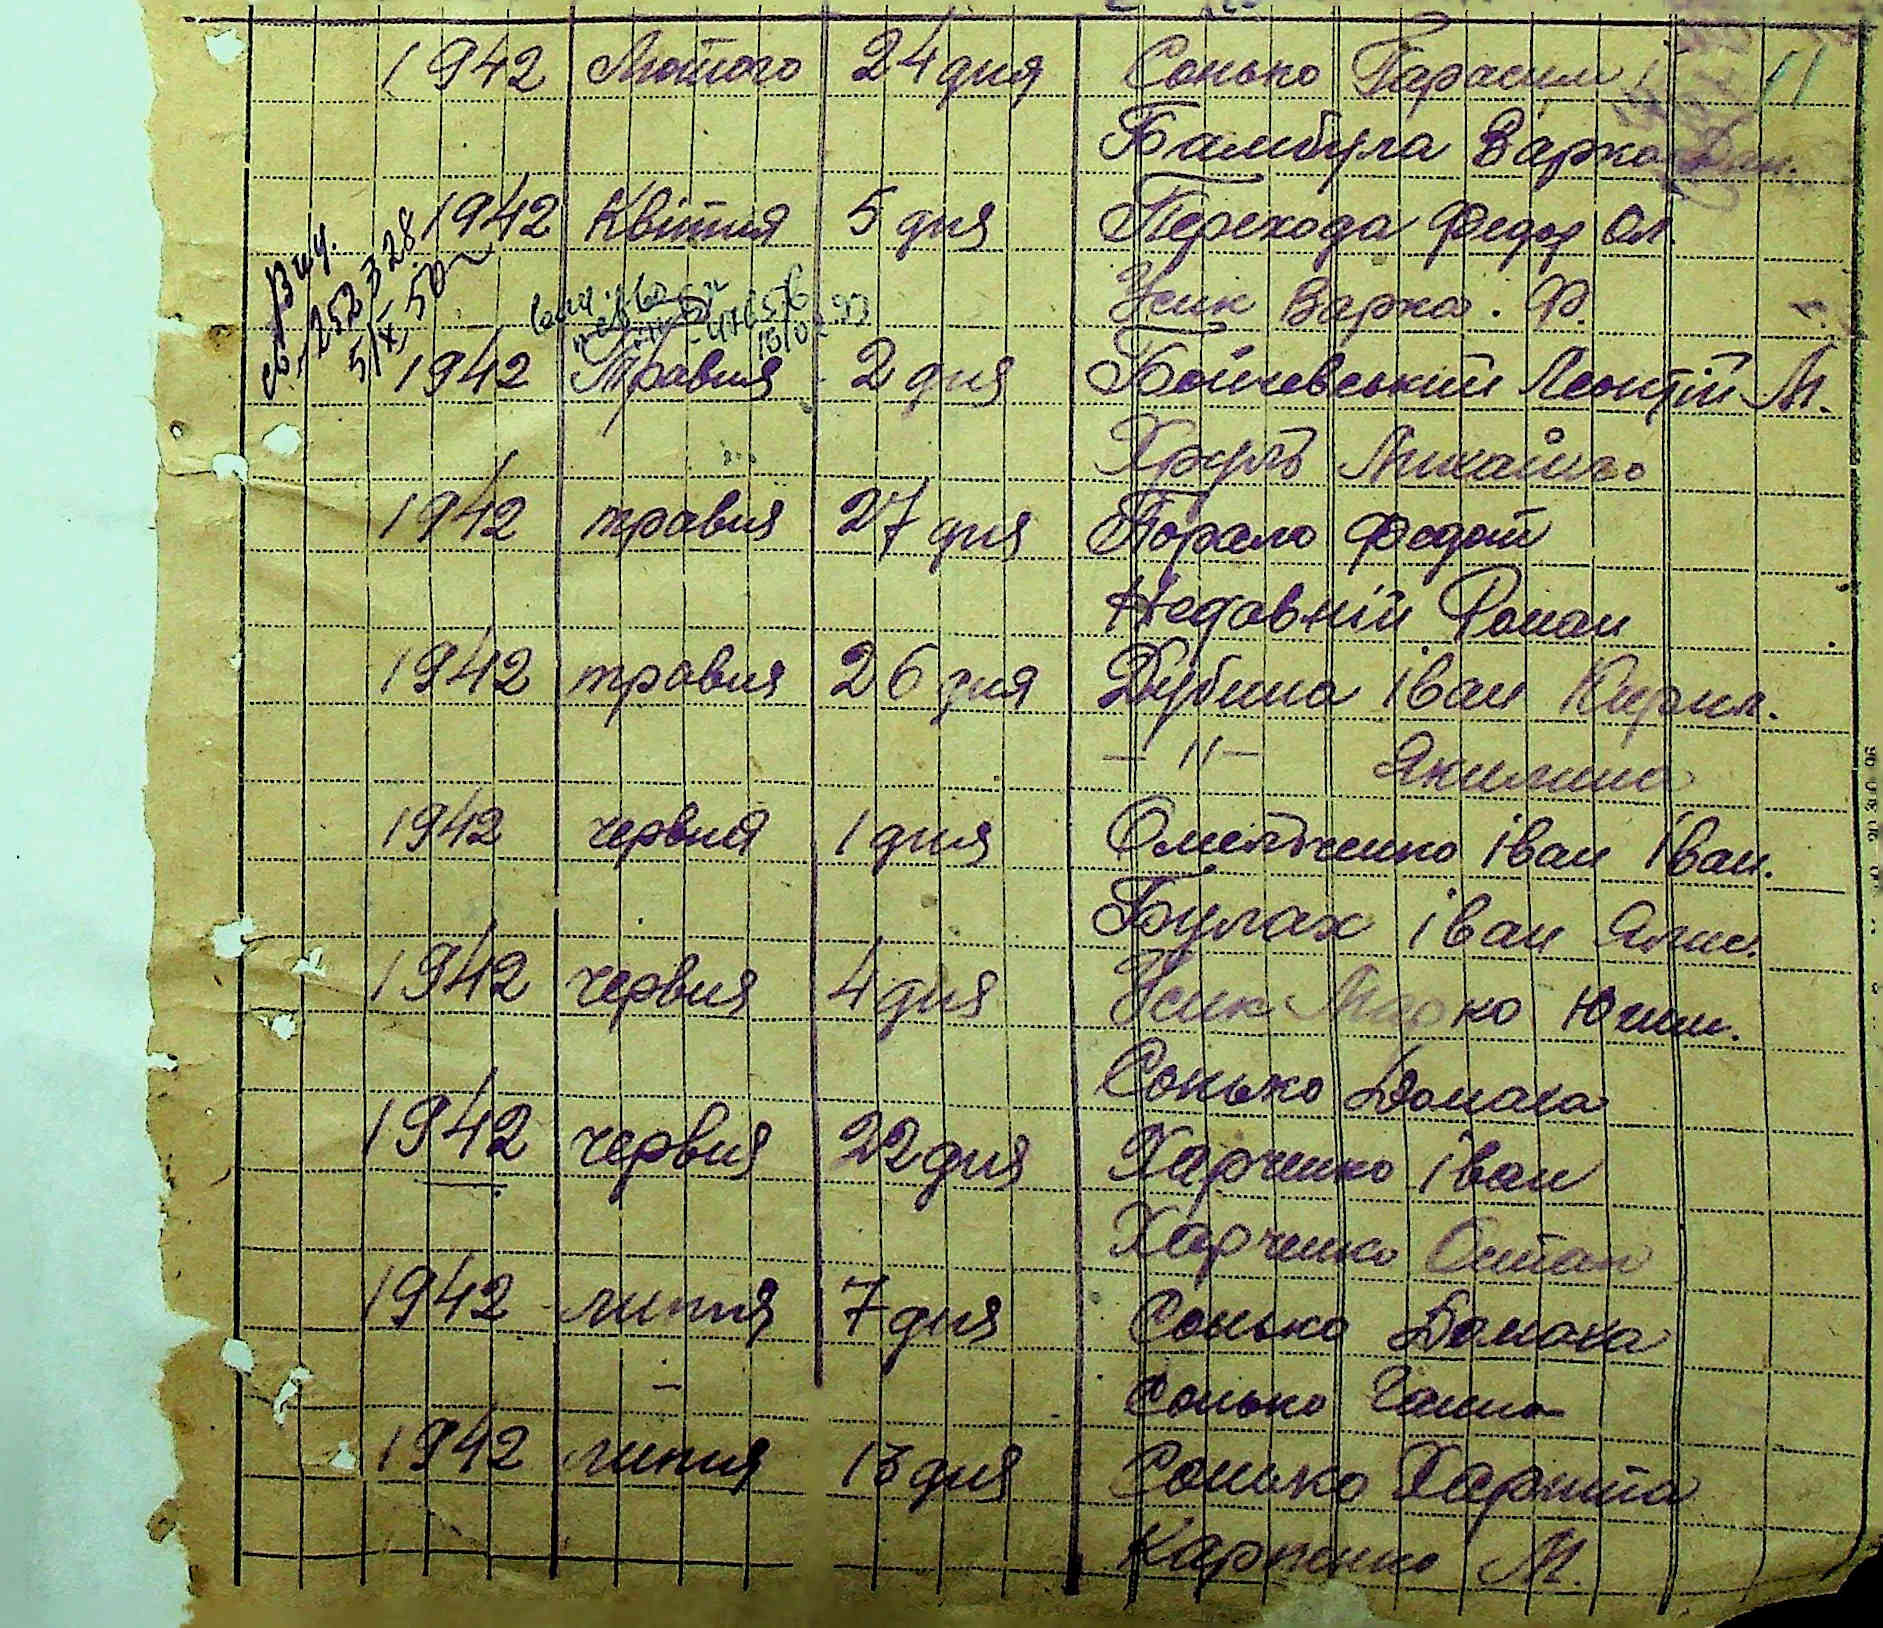 1942 Лютого 24 дня Сонько Гарасим 11
Бамбула Варка Дан.
1942 Квітня 5 дня Перехода Федор Ол.
Усик Варка. Ф.
Вид.
252328
5/ІХ 50
1942 Травня 2 дня Бойчевський Леонтій М.
Хруль Михайло
1942 травня 27 дня Порало Федот
Недавній Роман
1942 травня 26 дня Дубина Іван Кирил.
— " — Якилина
1942 червня 1 дня Омельченко Іван Іван.
Булах Іван
1942 червня 4 дня Усик Марко Юхим.
Сонько Домаха
1942 червня 22 дня Харченко Іван
Харченко Остап
1942 липня 7 дня Сонько Домаха
Сонько Ганна
1942 липня 13 дня Сонько Харита
Карпенко М.